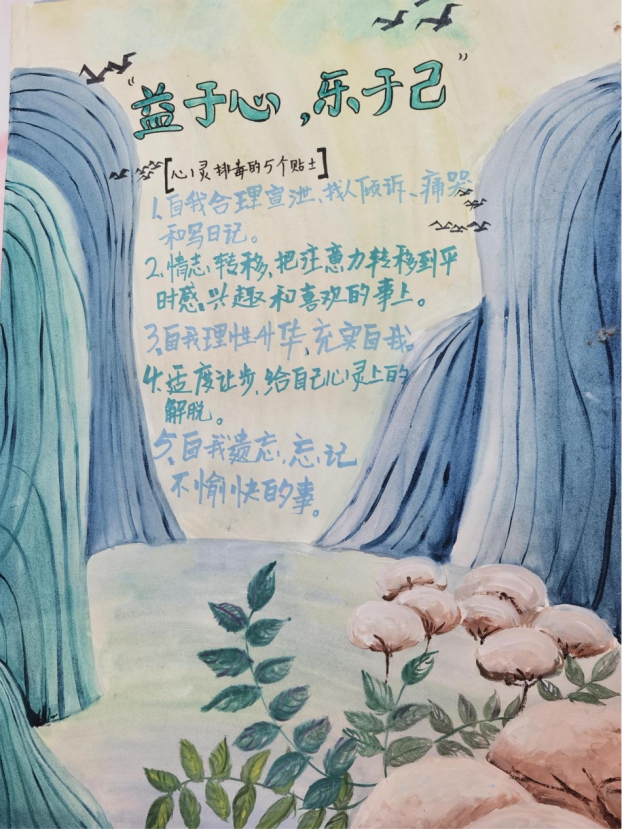 “益于心,乐于己”
[心灵排毒的5个贴士]
1、自我合理宣泄、找人倾诉、痛哭
和写日记。
2、情志转移,把注意力转移到平
时感兴趣和喜欢的事上。
3、自我理性升华,充实自我。
4、适度让步,给自己心灵上的
解脱。
5、自我遗忘,忘记
不愉快的事。